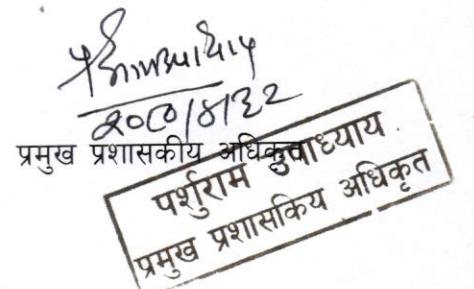 २०८०/४/३२
प्रमुख प्रशासकीय अधिकृत
पर्शुराम उपाध्याय
प्रमुख प्रशासकिय अधिकृत